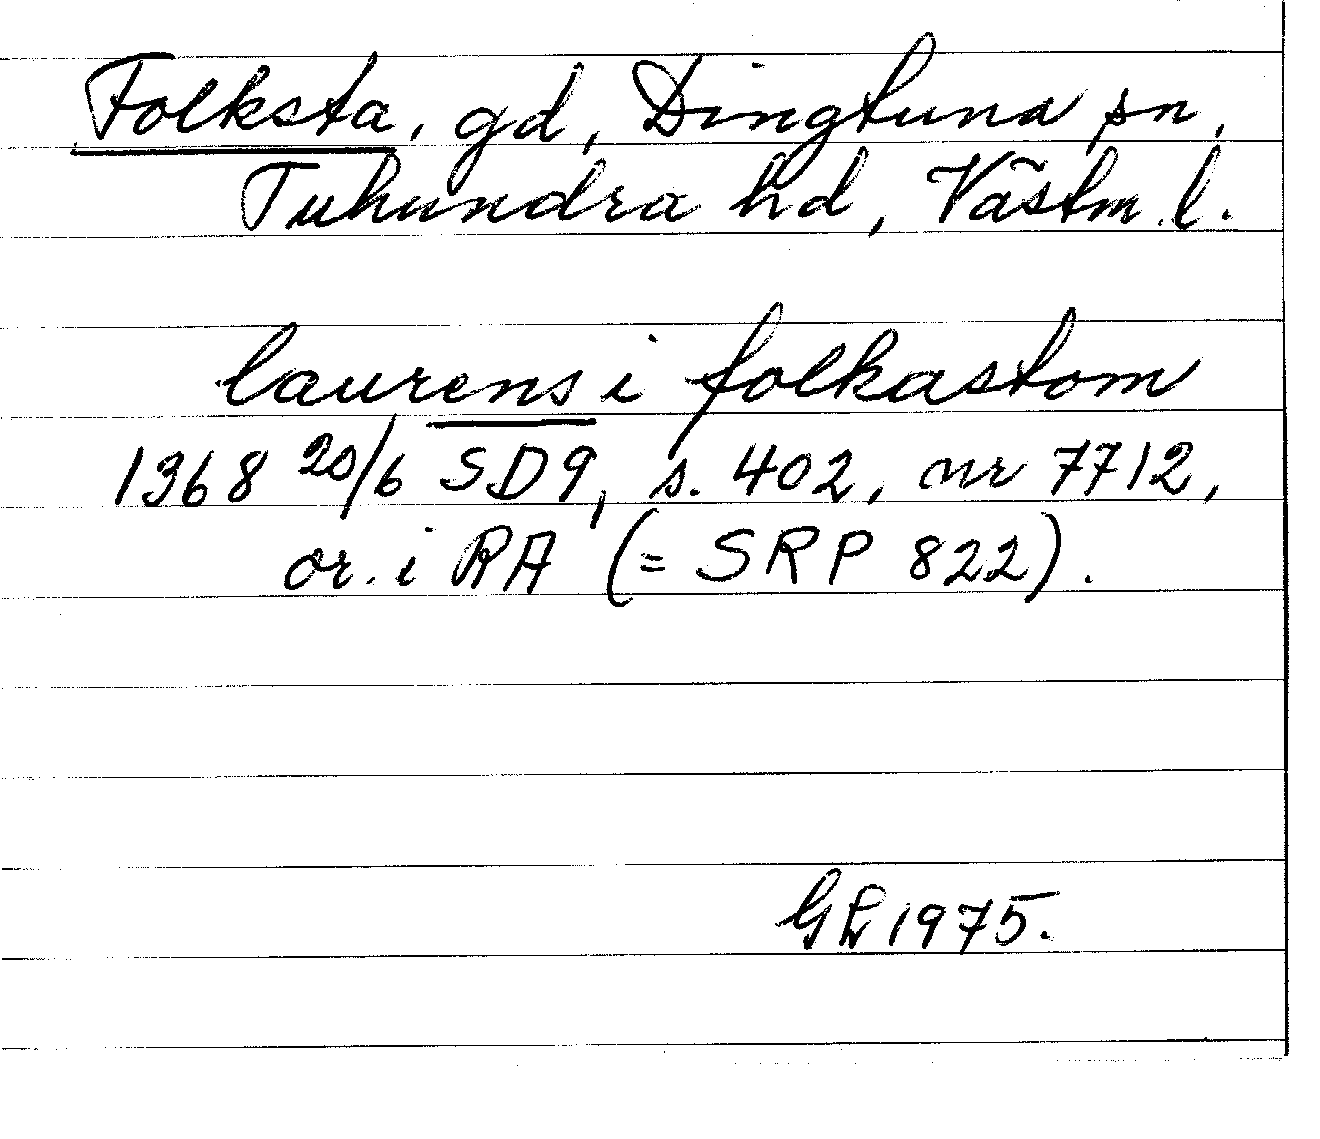 Folksta, gd, Dingtuna sn,
Tuhundra hd, Västm. l.
laurens i folkastom
1368 20/6 SD9, s. 402, nr 7712,
or. i RA (= SRP 822).
1975.